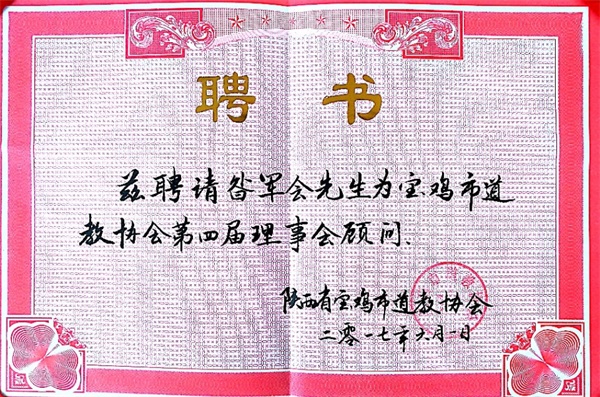 聘 书
兹聘请昝军会先生为宝鸡市道
教协会第四届理事会顾问、
陕西省宝鸡市道教协会
二零一七年六月一日